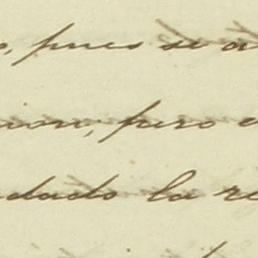 , pues se a
ion, pero e
dado la re